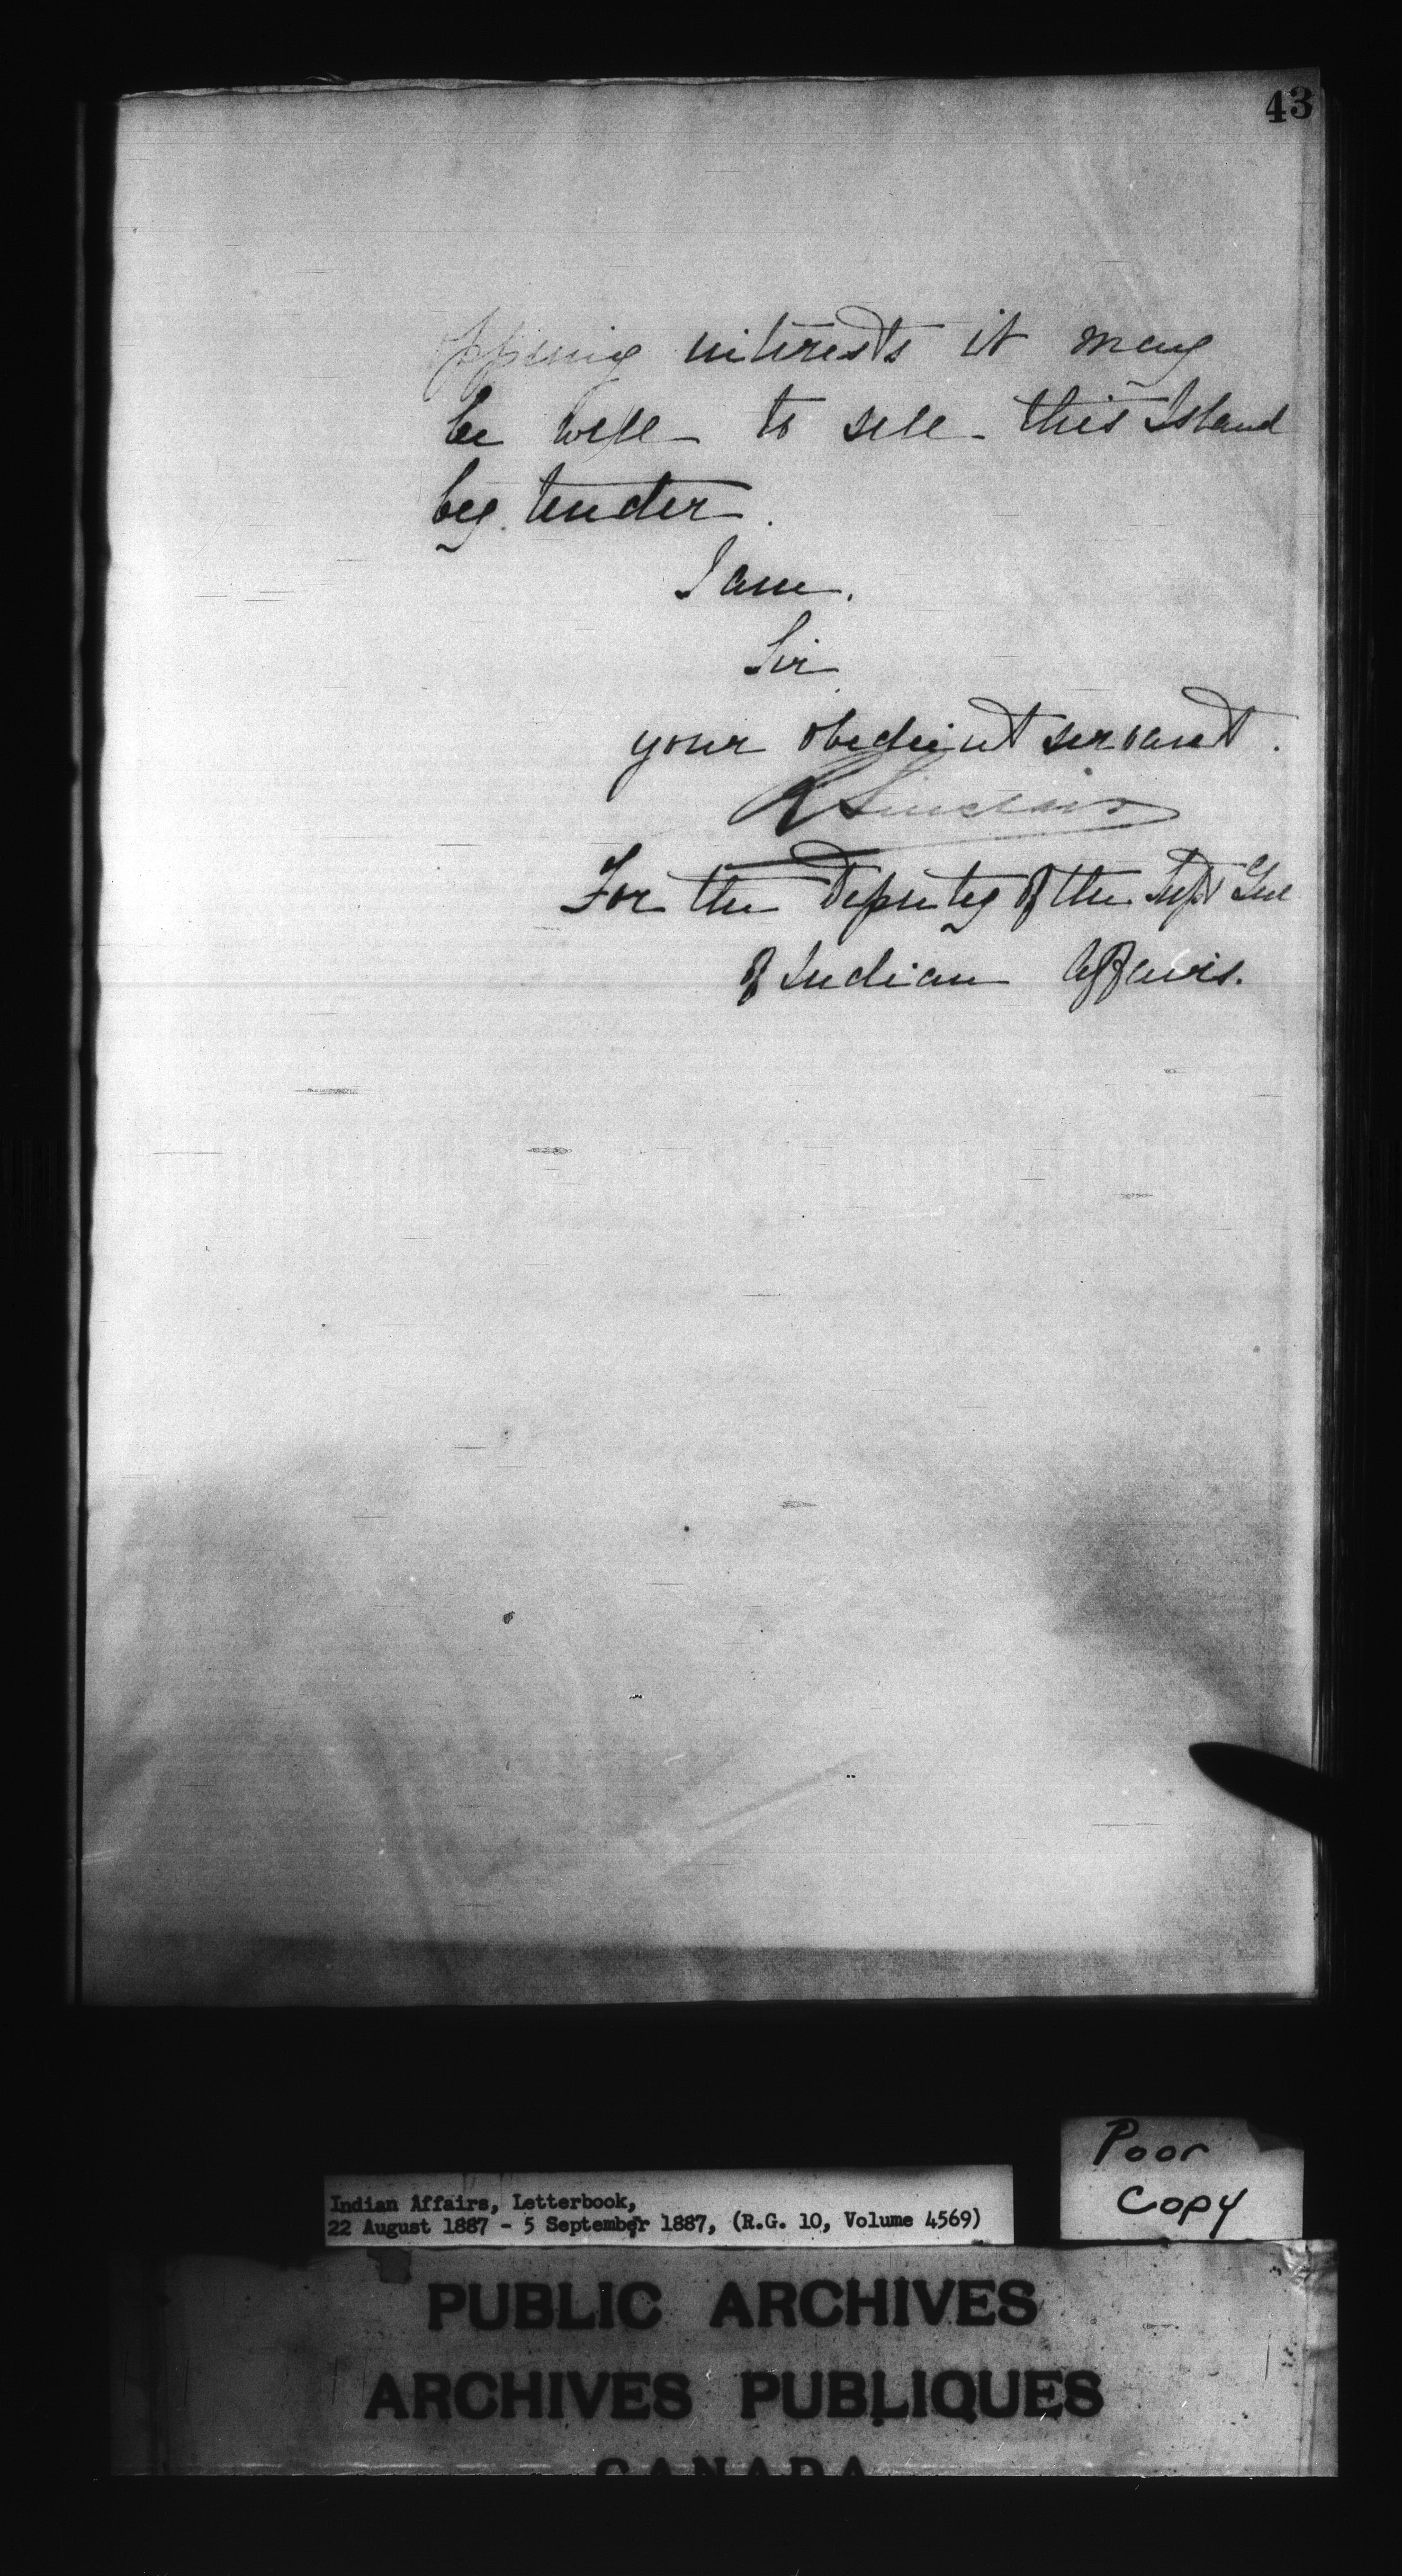 43
opposing interests it may
be well to sell this Island
by tender.
I am,
Sir
your obedient servant.
R Sinclair
For the Deputy of the Supt Genl
of Indian Affairs.
Poor
Copy
Indian Affairs, Letterbook,
22 August 1887 - 5 September 1887, (R.G. 10, Volume 4569)
PUBLIC ARCHIVES
ARCHIVES PUBLIQUES
CANADA